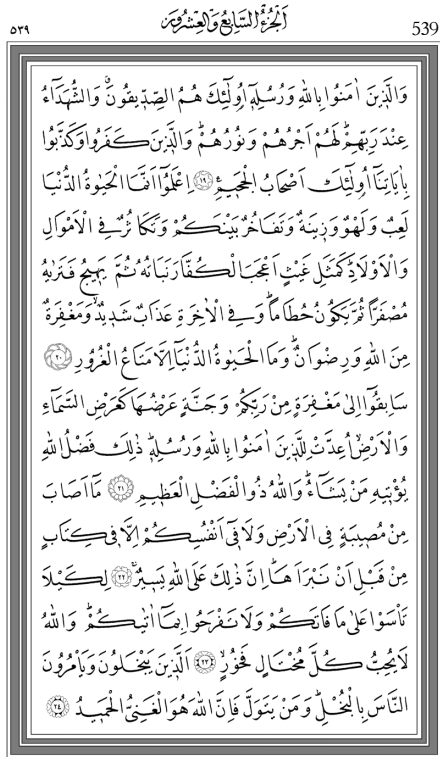 ٥٣٩ اَلْجُزْءُ السَّابِعُ وَالْعِشْرُونَ 539
وَالَّذ۪ينَ اٰمَنُوا بِاللّٰهِ وَرُسُلِه۪ٓ اُو۬لٰٓئِكَ هُمُ الصِّدّ۪يقُونَۗ وَالشُّهَدَٓاءُ
عِنْدَ رَبِّهِمْۜ لَهُمْ اَجْرُهُمْ وَنُورُهُمْۜ وَالَّذ۪ينَ كَفَرُوا وَكَذَّبُوا
بِاٰيَاتِنَٓا اُو۬لٰٓئِكَ اَصْحَابُ الْجَح۪يمِ۟ ﴿١٩﴾ اِعْلَمُٓوا اَنَّمَا الْحَيٰوةُ الدُّنْيَا
لَعِبٌ وَلَهْوٌ وَز۪ينَةٌ وَتَفَاخُرٌ بَيْنَكُمْ وَتَكَاثُرٌ فِي الْاَمْوَالِ
وَالْاَوْلَادِۜ كَمَثَلِ غَيْثٍ اَعْجَبَ الْكُفَّارَ نَبَاتُهُ ثُمَّ يَه۪يجُ فَتَرٰيهُ
مُصْفَرًّا ثُمَّ يَكُونُ حُطَامًاۜ وَفِي الْاٰخِرَةِ عَذَابٌ شَد۪يدٌۙ وَمَغْفِرَةٌ
مِنَ اللّٰهِ وَرِضْوَانٌۜ وَمَا الْحَيٰوةُ الدُّنْيَٓا اِلَّا مَتَاعُ الْغُرُورِ ﴿٢٠﴾
سَابِقُٓوا اِلٰى مَغْفِرَةٍ مِنْ رَبِّكُمْ وَجَنَّةٍ عَرْضُهَا كَعَرْضِ السَّمَٓاءِ
وَالْاَرْضِۙ اُعِدَّتْ لِلَّذ۪ينَ اٰمَنُوا بِاللّٰهِ وَرُسُلِه۪ۜ ذٰلِكَ فَضْلُ اللّٰهِ
يُؤْت۪يهِ مَنْ يَشَٓاءُۜ وَاللّٰهُ ذُو الْفَضْلِ الْعَظ۪يمِ ﴿٢١﴾ مَٓا اَصَابَ
مِنْ مُص۪يبَةٍ فِي الْاَرْضِ وَلَا ف۪ٓي اَنْفُسِكُمْ اِلَّا ف۪ي كِتَابٍ
مِنْ قَبْلِ اَنْ نَبْرَاَهَاۜ اِنَّ ذٰلِكَ عَلَى اللّٰهِ يَس۪يرٌۚ ﴿٢٢﴾ لِكَيْلَا
تَأْسَوْا عَلٰى مَا فَاتَكُمْ وَلَا تَفْرَحُوا بِمَٓا اٰتٰيكُمْۜ وَاللّٰهُ
لَا يُحِبُّ كُلَّ مُخْتَالٍ فَخُورٍۙ ﴿٢٣﴾ اَلَّذ۪ينَ يَبْخَلُونَ وَيَأْمُرُونَ
النَّاسَ بِالْبُخْلِۜ وَمَنْ يَتَوَلَّ فَاِنَّ اللّٰهَ هُوَ الْغَنِيُّ الْحَم۪يدُ ﴿٢٤﴾